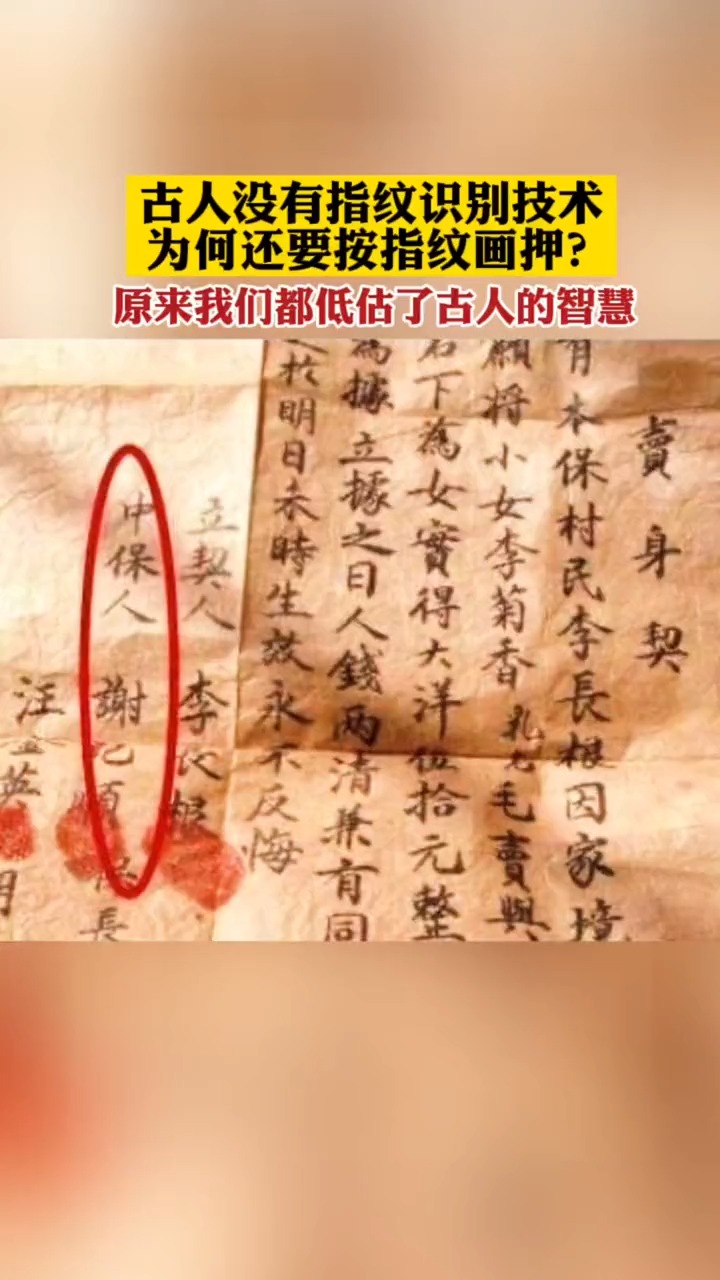 古人没有指纹识别技术
为何还要按指纹画押?
原来我们都低估了古人的智慧
賣身契
有本保村民李長根因家境
願將小女李菊香毛賣與
下為女實得大洋伍拾元整
為據立據之日人錢兩清兼有同
於明日未時生效永不反悔
立契人 李根
中保人 謝順保長
汪英